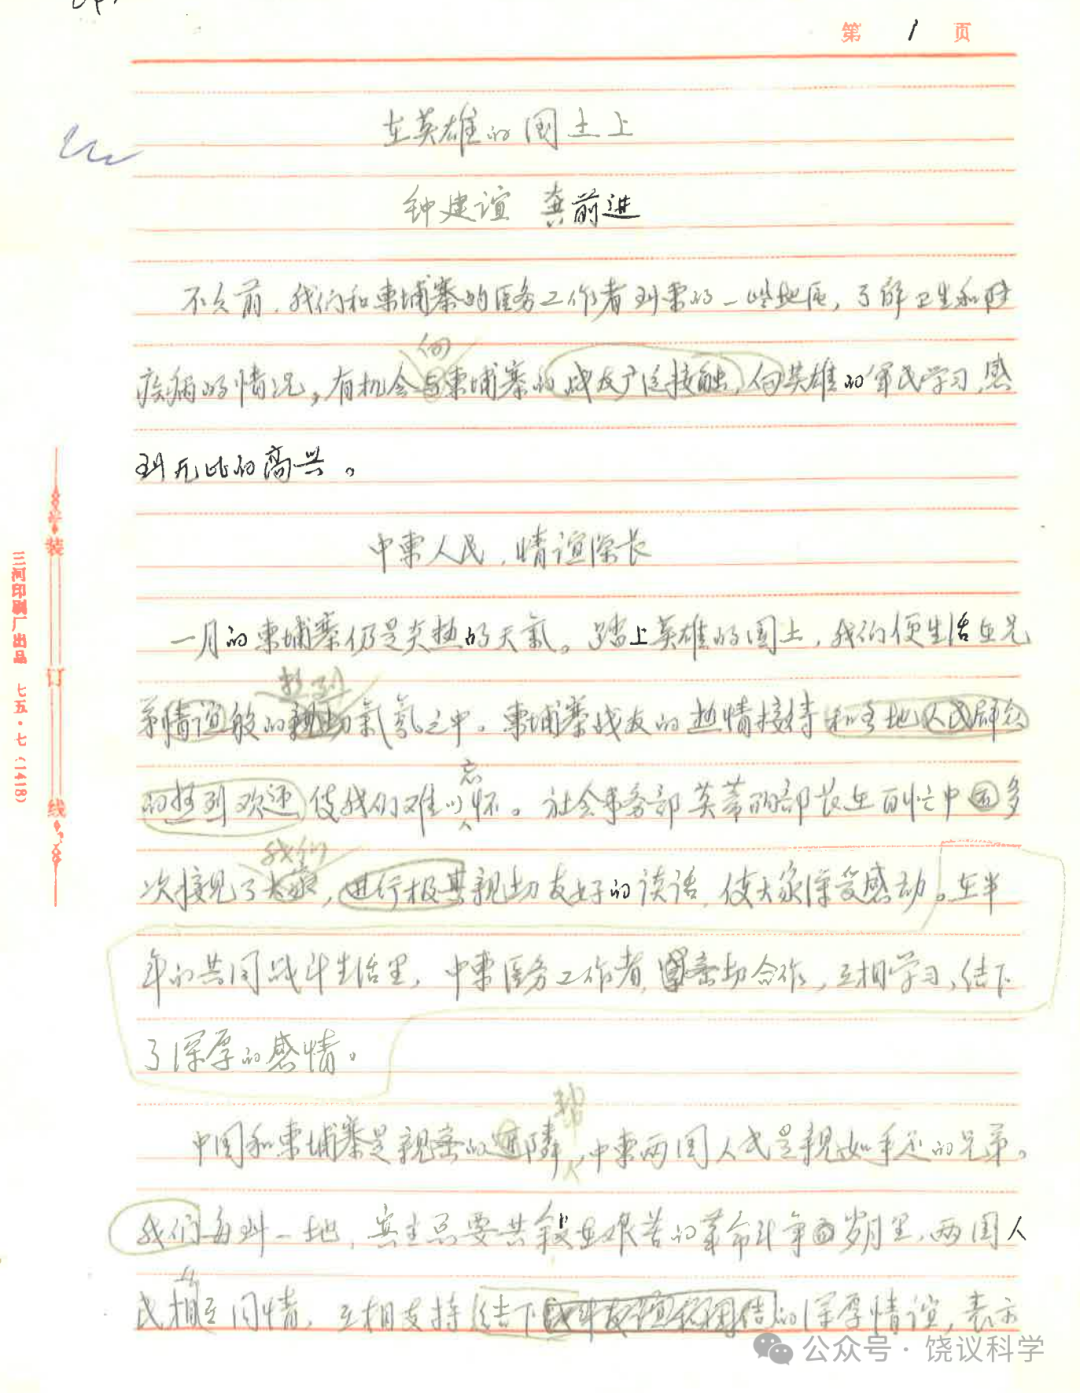 第 1 页
在英雄的国土上
钟建谊 龚前进
不久前，我们和柬埔寨的医务工作者到柬的一些地区，了解卫生和
疾病的情况，有机会与柬埔寨的战友广泛接触，向英雄的军民学习，感
到无比的高兴。
中柬人民，情谊深长
一月的柬埔寨仍是炎热的天气。踏上英雄的国土，我们便生活在兄
热烈
弟情谊般的亲切气氛之中。柬埔寨战友的热情接待和各地人民群众
的热烈欢迎使我们难以忘怀。社会事务部英蒂的部长在百忙中多
我们
次接见了大家，进行极其亲切友好的谈话，使大家深受感动。在半
年的共同战斗生活里，中柬医务工作者，密切合作，互相学习，结下
了深厚的感情。
中国和柬埔寨是亲密的近邻，中柬两国人民是亲如手足的兄弟。
我们每到一地，宾主总要共叙在艰苦的革命斗争岁月里，两国人
民相互同情，互相支持结下的深厚情谊，表示
装
订
线
三河印刷厂出品 七五·七(1418)
公众号·饶议科学